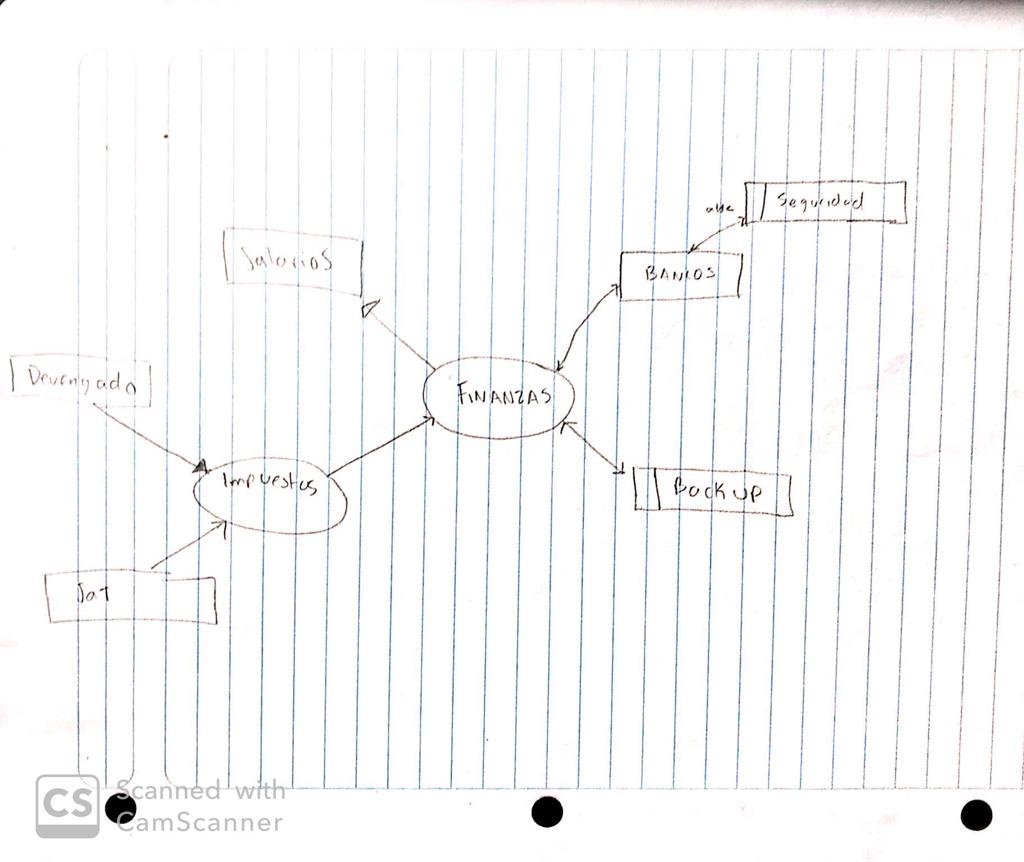 Seguridad
Salarios
BANCOS
Devengado
FINANZAS
Impuestos
Backup
Sat
CS Scanned with
CamScanner